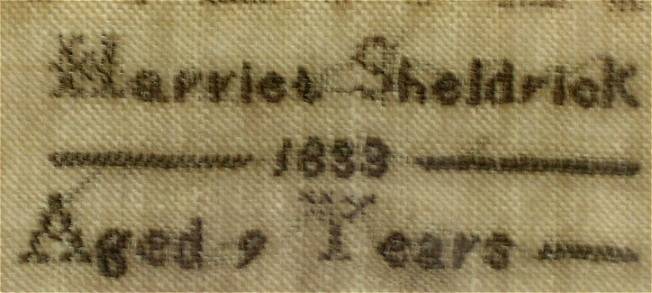 Harriet Sheldrick
1833
Aged 9 Years